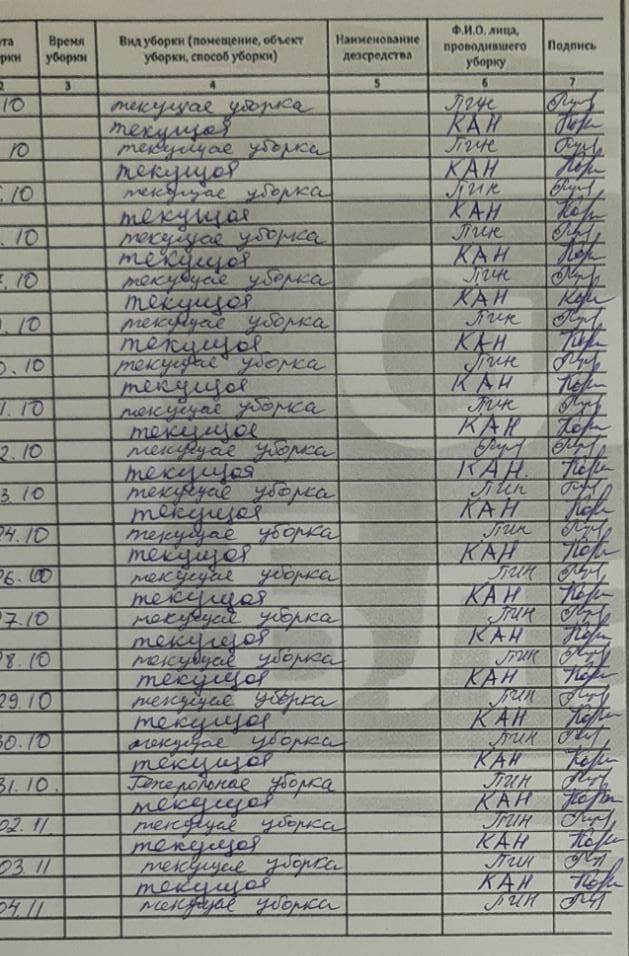 та Время Вид уборки (помещение, объект Наименование Ф.И.О. лица, Подпись
рки уборки уборки, способ уборки) дезсредства проводившего
уборку
2 3 4 5 6 7
10 текущае уборка ПИН
текущая КАН
10 текущае уборка ПИН
текущая КАН
.10 текущае уборка ПИН
текущая КАН
.10 текущае уборка ПИН
текущая КАН
7.10 текущае уборка ПИН
текущая КАН
.10 текущае уборка ПИН
текущая КАН
0.10 текущае уборка ПИН
текущая КАН
1.10 текущае уборка ПИН
текущая КАН
2.10 текущае уборка
текущая КАН.
3.10 текущае уборка ПИН
текущая КАН
24.10 текущае уборка ПИН
текущая КАН
26.10 текущае уборка ПИН
текущая КАН
27.10 текущае уборка ПИН
текущая КАН
28.10 текущае уборка ПИН
текущая КАН
29.10 текущае уборка ПИН
текущая КАН
30.10 текущае уборка ПИН
текущая КАН
31.10. Генеральная уборка ПИН
текущая КАН
02.11 текущае уборка ПИН
текущая КАН
03.11 текущае уборка ПИН
текущая КАН
04.11 текущае уборка ПИН